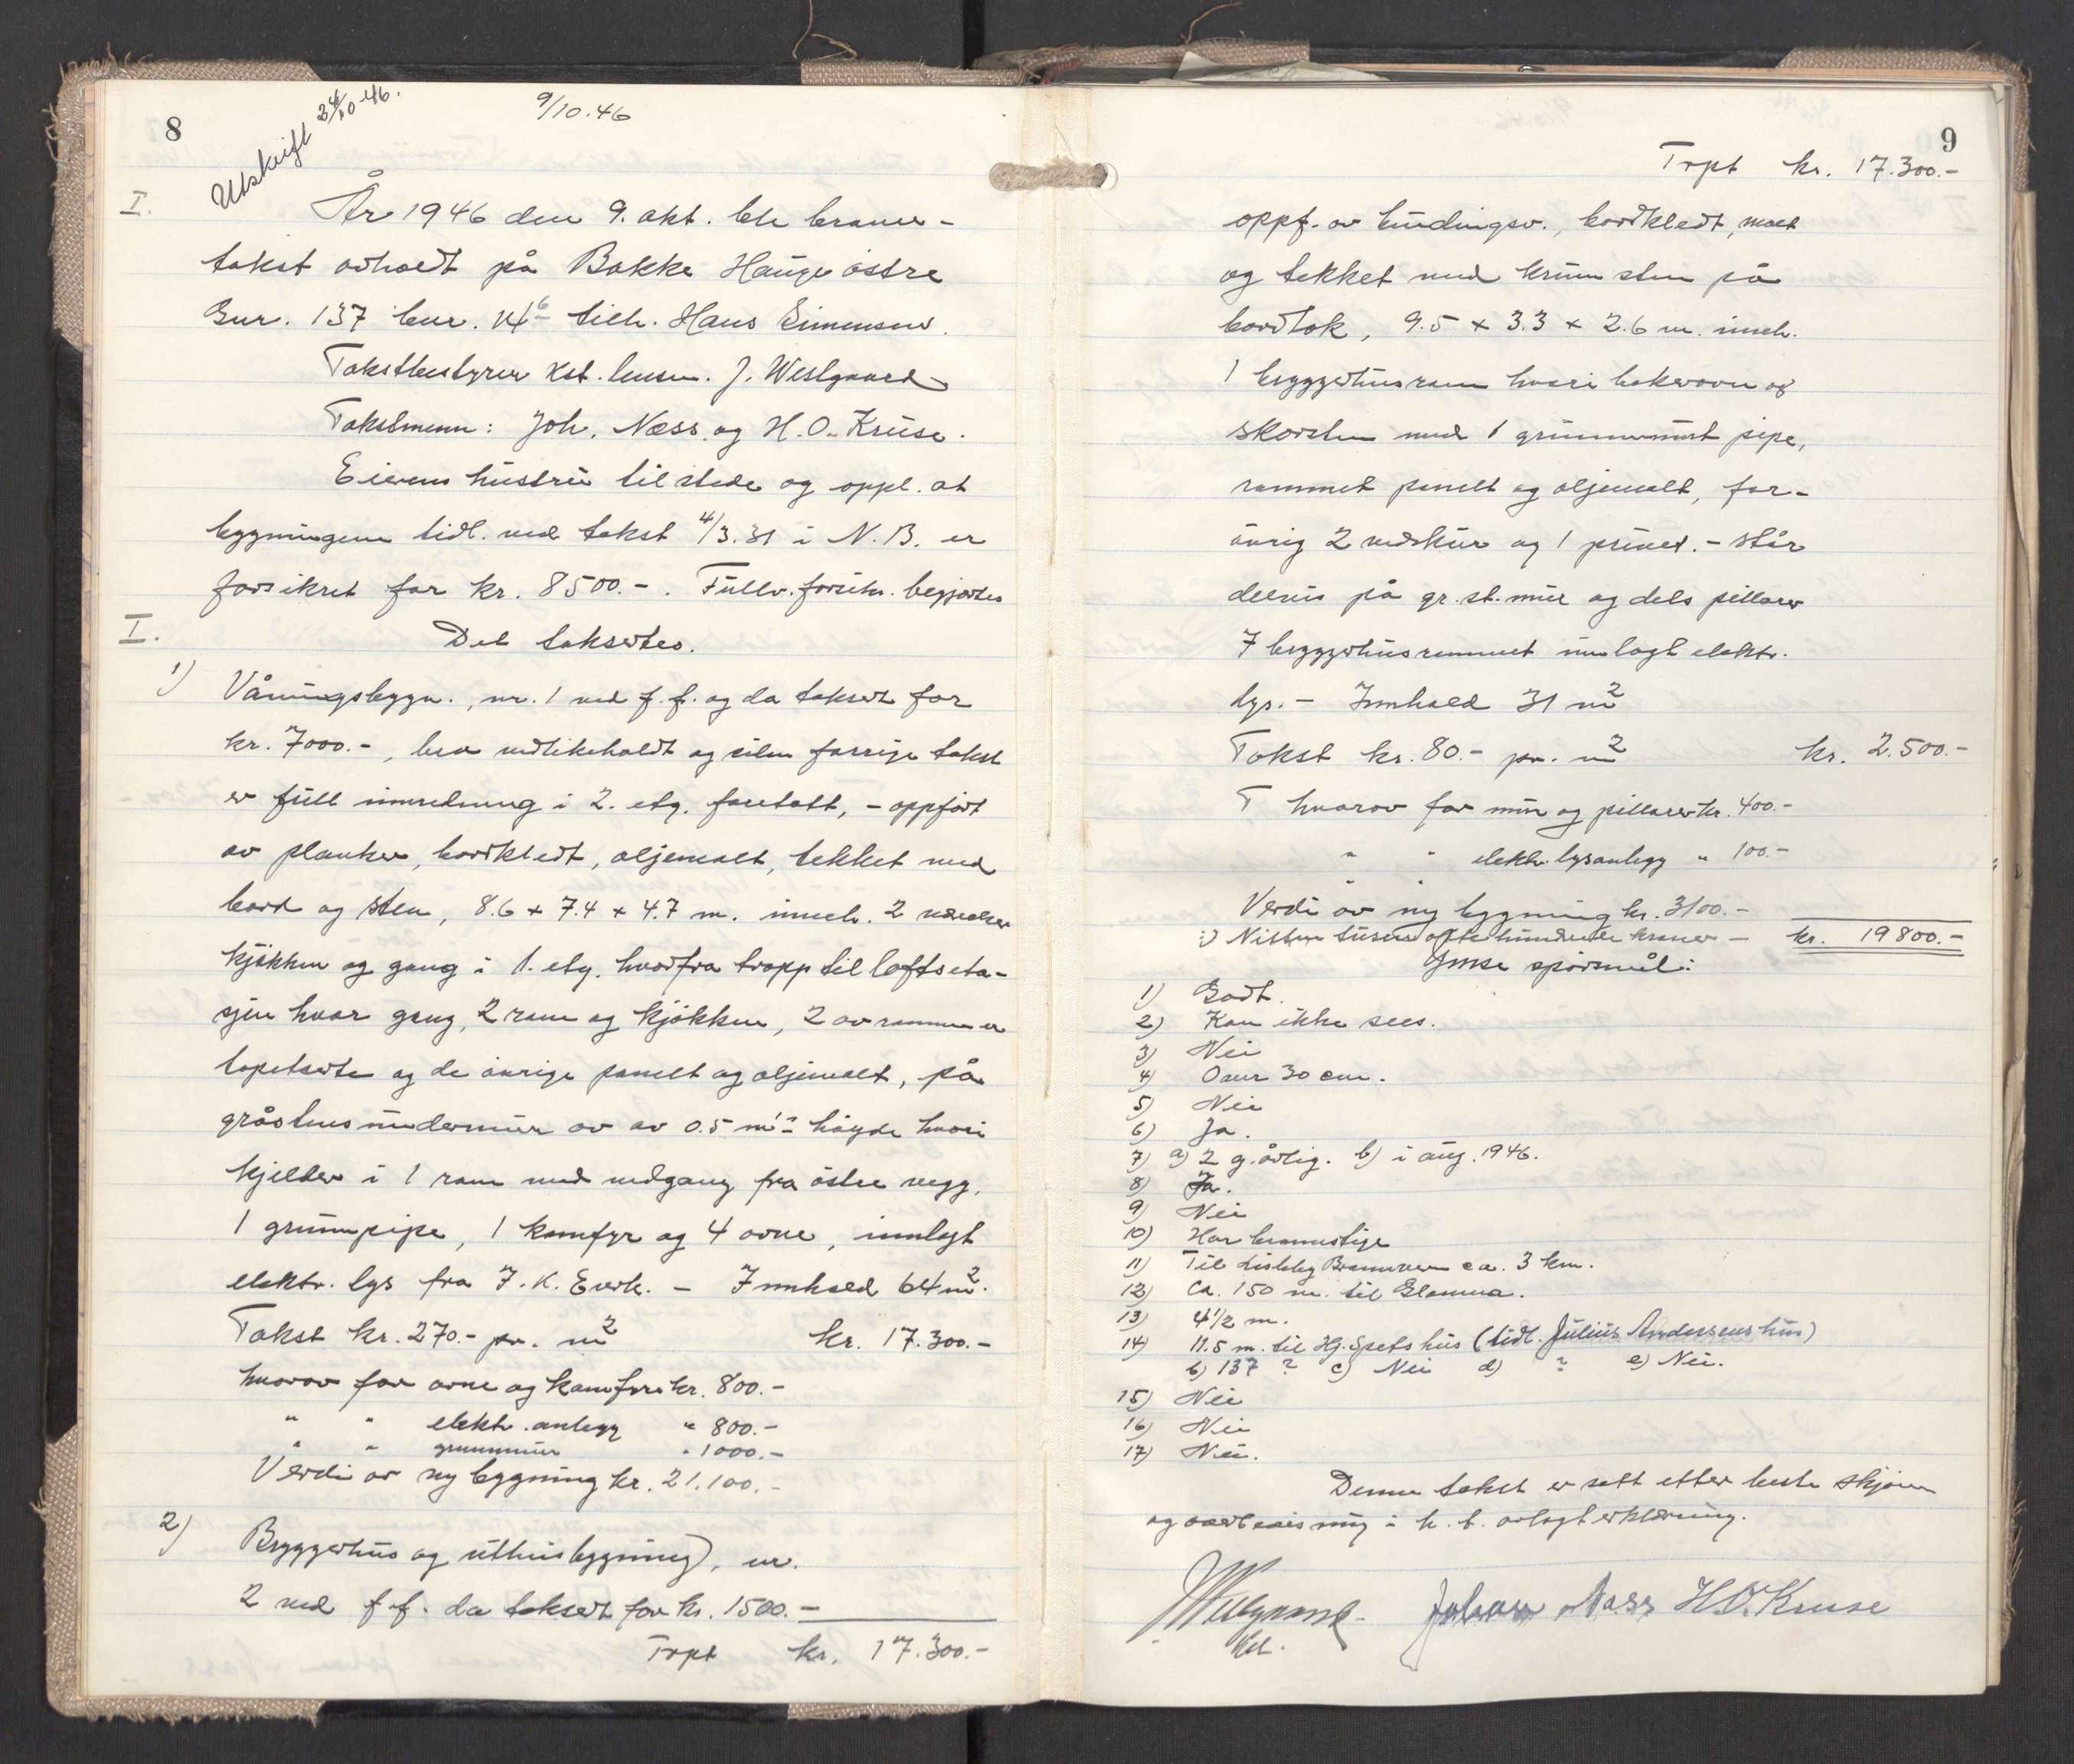 8
Utskrift 24/10 46.
9/10.46
I.
År 1946 den 9. okt. ble brann-
takst avholdt på Bakke Hauge østre
Gnr. 137 bnr. 6 tilh. Hans Simensen.
Takstbestyrer kst. lensm. J. Westgaard
Takstmenn: Joh. Næss og H. O. Kruse.
Eierens hustru tilstede og oppl. at
bygningene tidl. ved takst 4/3.31 i N. B. er
forsikret for kr. 8500.-. Fullv. forsikr. begjærtes
I.
Det taksertes.
1) Våningsbygn., nr. 1 ved f.f. og da taksert for
kr. 7000.-, bra vedlikeholdt og siden forrige takst
er full innredning i 2. etg. foretatt, - oppført
av planker, bordkledt, oljemalt, tekket med
bord og sten, 8.6 x 7.4 x 4.7 m. inneh. 2 værelser
kjøkken og gang i 1. etg. hvorfra trapp til loftseta-
sjen hvor gang, 2 rom og kjøkken, 2 av rommene er
tapetserte og de øvrige panelt og oljemalt, på
gråstens undermur av av 0.5 m's høyde hvori
kjeller i 1 rom med nedgang fra østre vegg.
1 grunnpipe, 1 komfyr og 4 ovne, innlagt
elektr. lys fra F. K. Everk. - Innhold 64 m².
Takst kr. 270.- pr. m² kr. 17.300.-
hvorav for ovne og komfyr kr. 800.-
" " elektr. anlegg " 800.-
" " grunnmur " 1000.-
Verdi av ny bygning kr. 21.100.-
2) Bryggerhus og uthusbygning), nr.
2 ved f.f. da taksert for kr. 1500.-
Trpt kr. 17.300.-
9
Trpt kr. 17.300.-
oppf. av bindingsv., bordkledt, malt
og tekket med krum sten på
bordtak, 9.5 x 3.3 x 2.6 m. inneh.
1 bryggerhusrom hvori bakerovn og
skorsten med 1 grunnmurt pipe,
rommet panelt og oljemalt, for-
øvrig 2 vedskur og 1 privet. - står
delvis på gr. st. mur og dels pillarer
I bryggerhusrommet innlagt elektr.
lys. - Innhold 31 m²
Takst kr. 80.- pr. m² kr. 2.500.-
hvorav for mur og pillarer kr. 400.-
" " elektr. lysanlegg " 100.-
Verdi av ny bygning kr. 3100.-
:) Nitten tusen åtte hundrede kroner - kr. 19800.-
Innse spørsmål:
1) Godt.
2) Kan ikke sees.
3) Nei
4) Over 30 cm.
5) Nei
6) Ja.
7) a) 2 g. årlig. b) i aug. 1946.
8) Ja.
9) Nei
10) Har brannstige
11) Til Lisleby Brannvesen ca. 3 km.
12) Ca. 150 m. til Glomma.
13) 4 1/2 m.
14) 11.5 m. til Hj. Spets hus (tidl. Julius Anderssens hus)
b) 137 ? c) Nei d) ? e) Nei.
15) Nei
16) Nei
17) Nei.
Denne takst er satt etter beste skjønn
og overbevisning i h. t. avlagt erklæring.
JWestgaard
kst.
Johan Næss H.O.Kruse